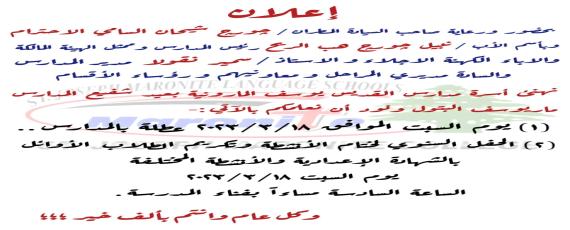 إعلان
بحضور ورعاية صاحب السيادة المطران / جورج شيحان السامي الاحترام
وباسم الأب / نبيل جورج هب الريح رئيس المدارس وممثل الهيئة المالكة
والآباء الكهنة الأجلاء و الاستاذ / سمير نقولا مدير المدارس
والسادة مديري المراحل ومعاونيهم ورؤساء الأقسام
نهنئ أسرة مدارس القديس يوسف المارونية بعيد شفيع المدارس
ماريوسف البتول ونود أن نعلمكم بالآتي :-
(١) يوم السبت الموافق ٢٠٢٣/٣/١٨ عطلة بالمدارس ..
(٢) الحفل السنوي لختام الأنشطة وتكريم الطلاب الأوائل
بالشهادة الإعدادية والأنشطة المختلفة
يوم السبت ٢٠٢٣/٣/١٨
الساعة السادسة مساءاً بفناء المدرسة .
وكل عام وانتم بألف خير ؛؛؛
MARONITE LANGUAGE SCHOOLS